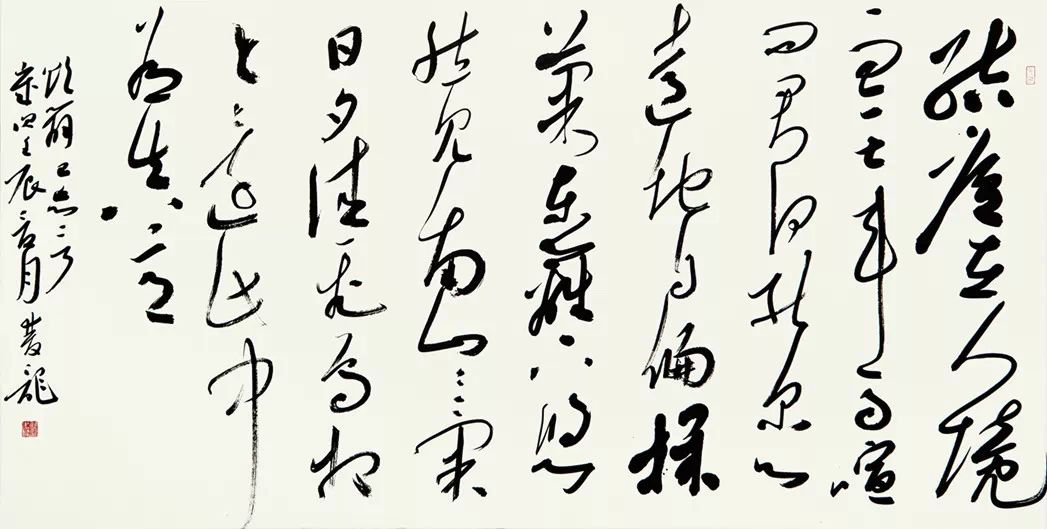 結廬在人境
而無車馬喧
問君何能爾心
遠地自偏採
菊東籬下悠
然見南山山氣
日夕佳飛鳥相
與還此中
有真意
欲辯已忘言
歲次壬辰 月 龍